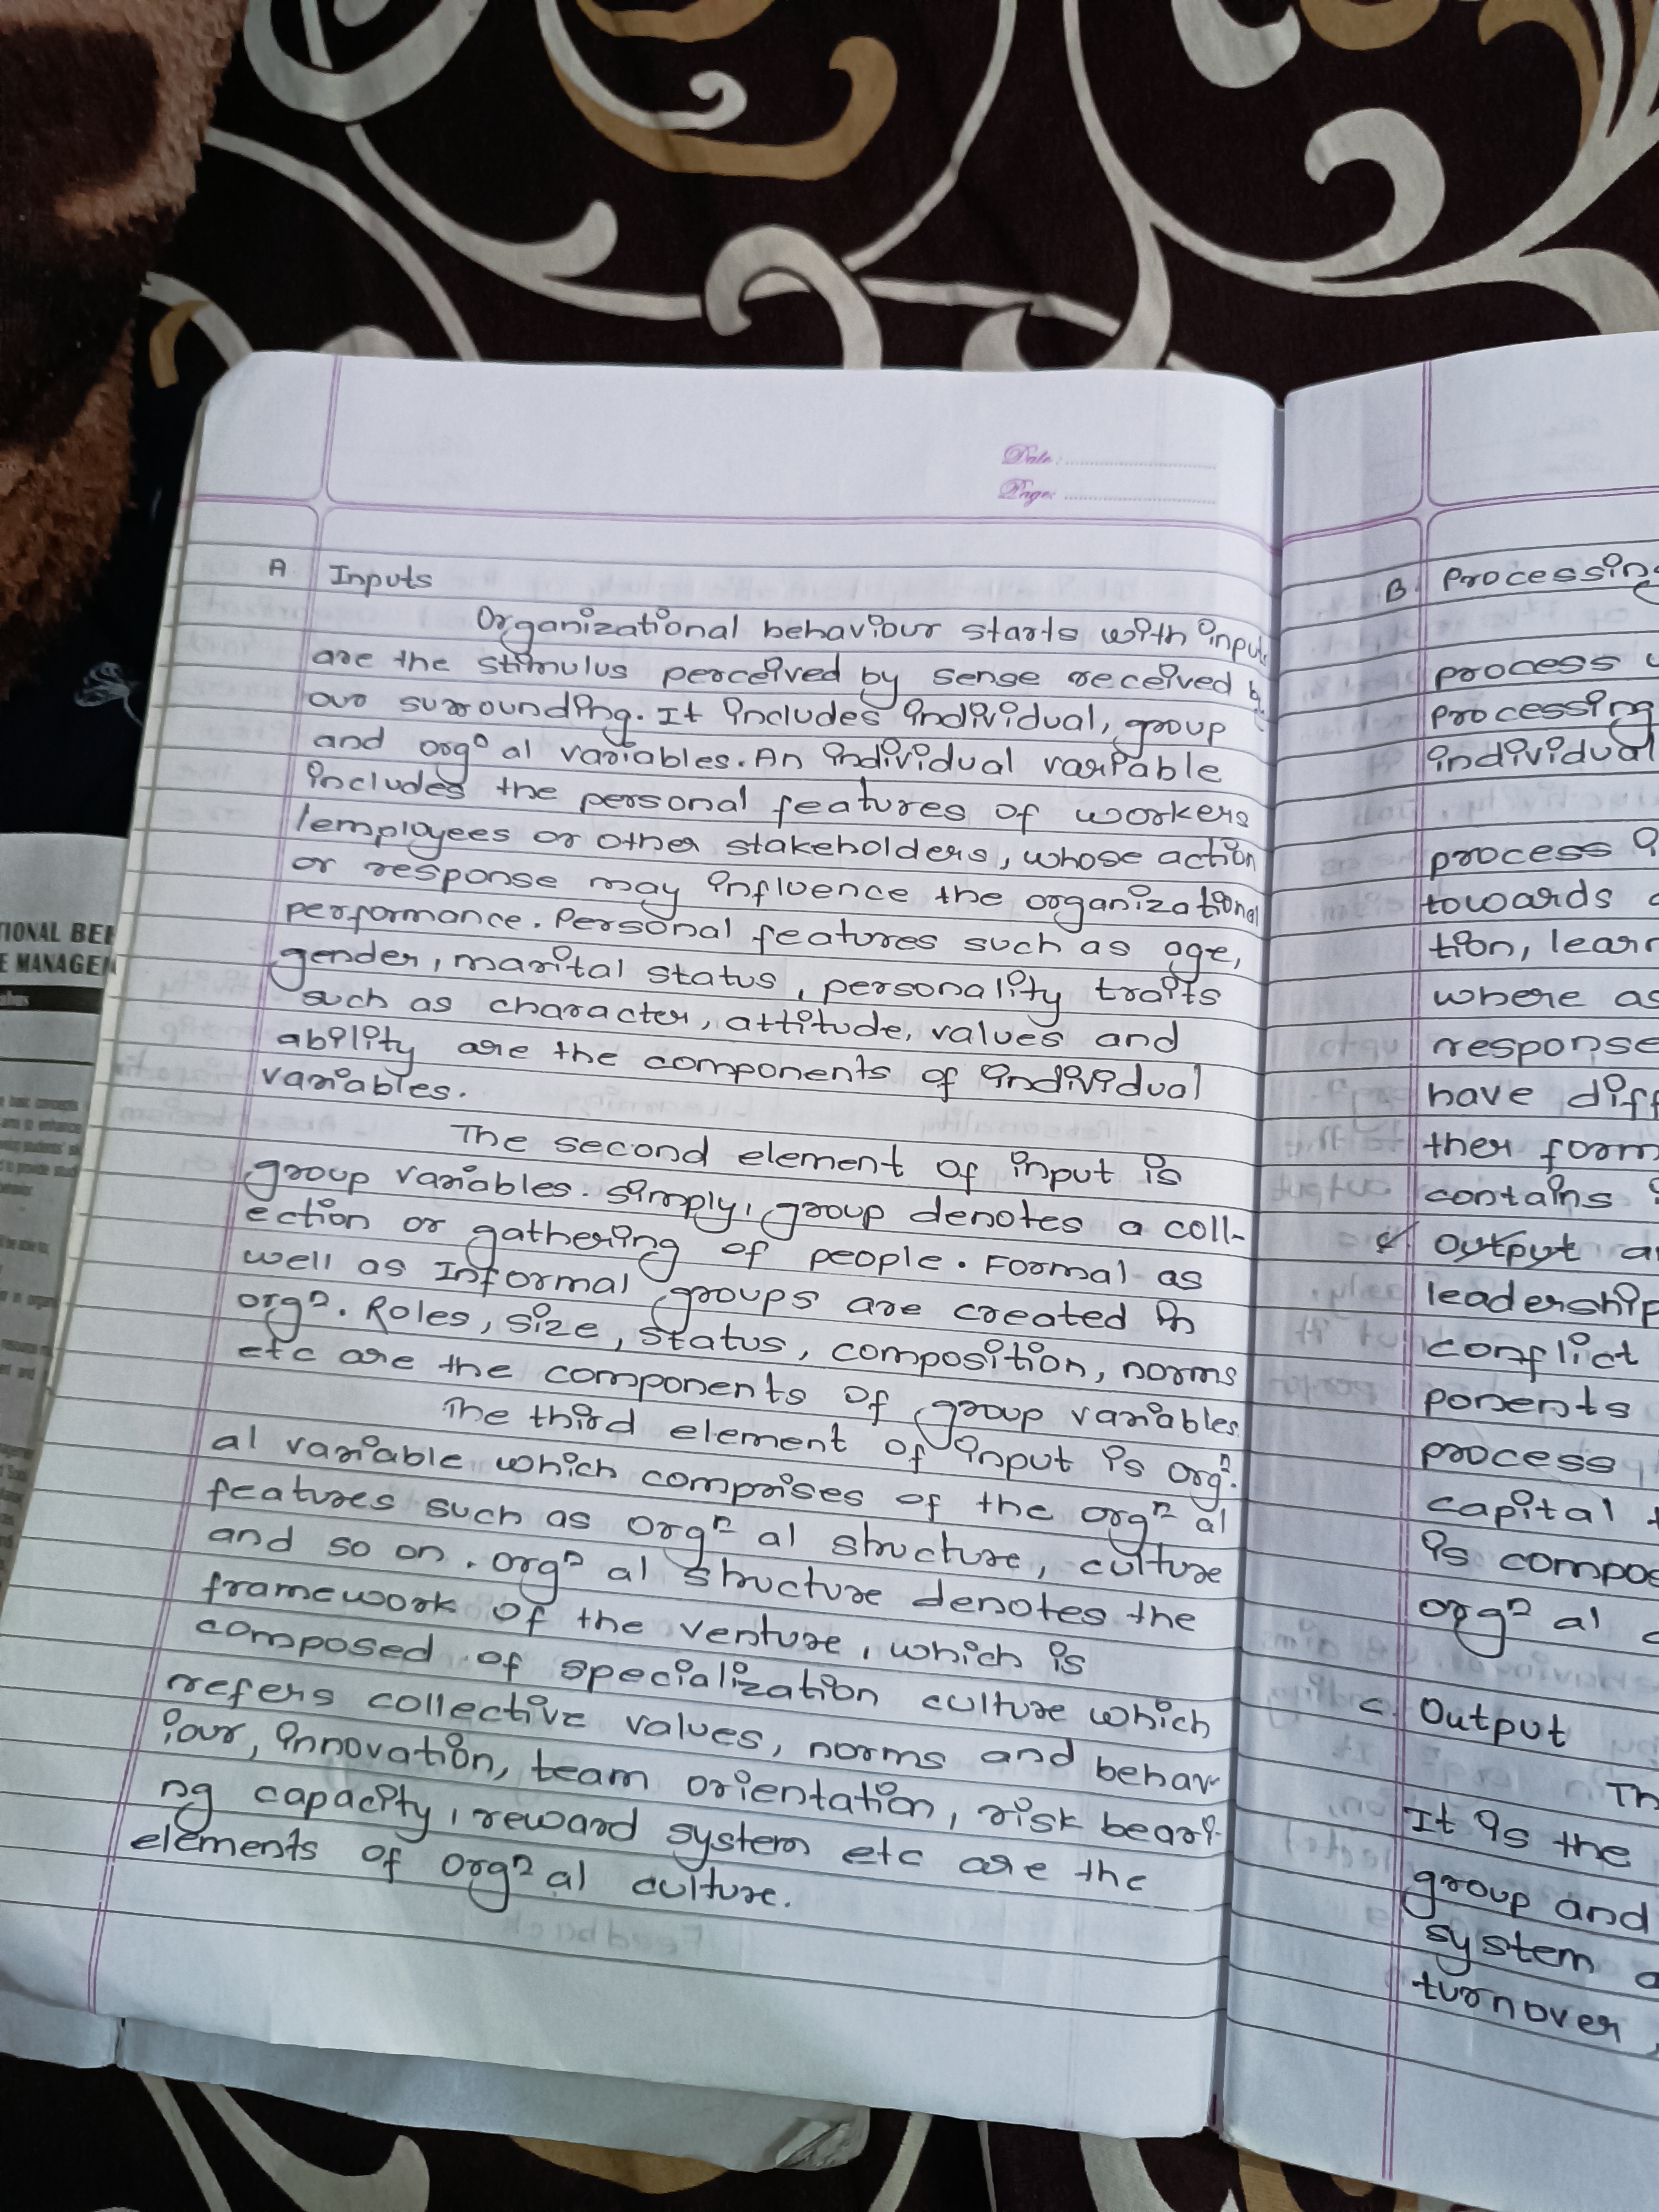 Date:
Page:
A Inputs
Organizational behaviour starts with inputs
are the stimulus perceived by sense received by
our surrounding. It includes individual, group
and orgⁿ al variables. An individual variable
includes the personal features of workers
/employees or other stakeholders, whose action
or response may influence the organizational
performance. Personal features such as age,
gender, marital status, personality traits
such as character, attitude, values and
ability are the components of individual
variables.
The second element of input is
group variables. Simply, group denotes a coll-
ection or gathering of people. Formal as
well as Informal groups are created in
orgⁿ. Roles, size, status, composition, norms
etc are the components of group variables.
The third element of input is orgⁿ.
al variable which comprises of the orgⁿ al
features such as orgⁿ al structure, culture
and so on. orgⁿ al structure denotes the
framework of the venture, which is
composed of specialization culture which
refers collective values, norms and behav-
iour, innovation, team orientation, risk beari-
ng capacity, reward system etc are the
elements of orgⁿ al culture.
B. Processing
process
Processing
individual
process
towards
tion, learn
where as
response
have diff
ther form
contains
Output
leadership
conflict
ponents
process
capital
is compos
orgⁿ al
C. Output
Th
It is the
group and
system
turnover,
TIONAL BEH
E MANAGEM